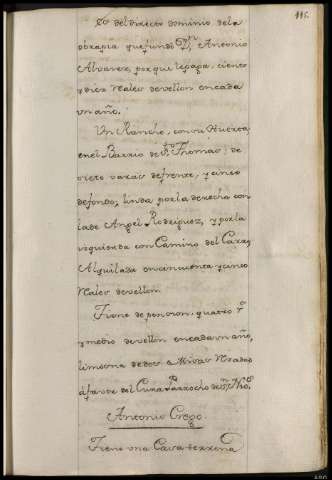 116.
Es del directo dominio de la
obrapia que fundó Dn. Antonio
Alvarez, por que le paga, ciento
y diez reales de vellon en cada
un año.
Un Rancho, con su Huerta
en el Barrio de Sto. Thomas, de
siete varas de frente, y cinco
de fondo, linda por la derecha con
la de Angel Rodriguez, y por la
izquierda con Camino del Caxa,
Alquilada en cincuenta y cinco
reales de vellon.
Tiene de pension, quatro rs.
y medio de vellon en cada un año,
limosna de dos Misas rezadas
á favor del Cura Parrocho de Sto. Thos.
Antonio Crego.
Tiene una Casa terrena